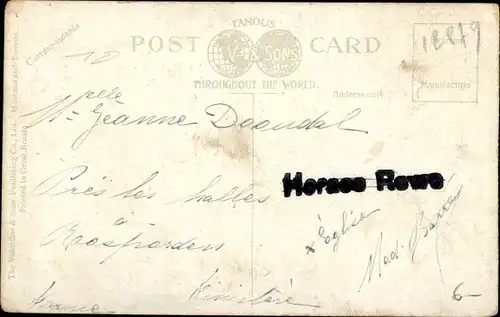 FAMOUS
POST CARD
V & SONS
THROUGHOUT THE WORLD.
Correspondence
Address only
MANUFACTURE
The Valentine & Sons Publishing Co., Ltd., Montreal and Toronto.
Printed in Great Britain
10
18819
Melle Jeanne Daoudal
Près les halles
à
Rosporden
Finistère
France
Horace Rowe
x Église
Mad. Barré
6-